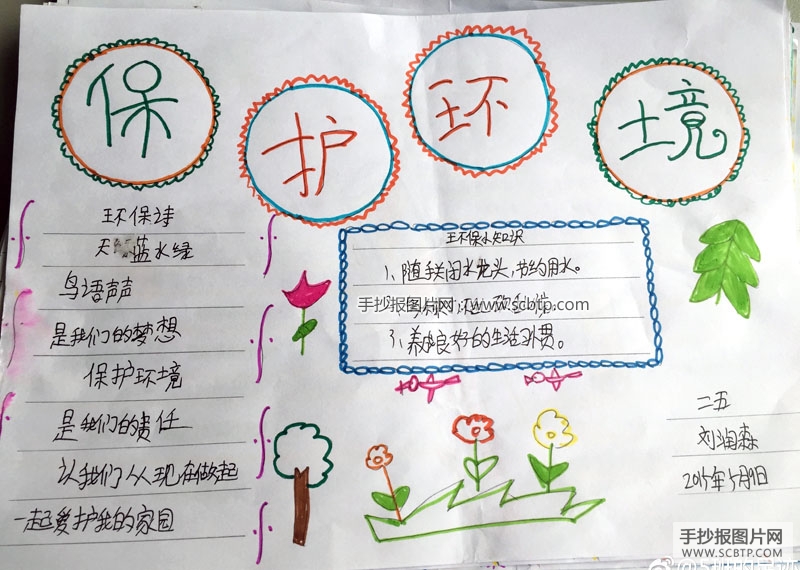 保护环境
环保诗
天 蓝水绿
鸟语声声
是我们的梦想
保护环境
是我们的责任
让我们从现在做起
一起爱护我的家园
环保小知识
1、随手关闭水龙头,节约用水。
手抄报图片网 www.scbtp.com
3、养成良好的生活习惯。
二五
刘润森
2015年5月9日
手抄报图片网
WWW.SCBTP.COM